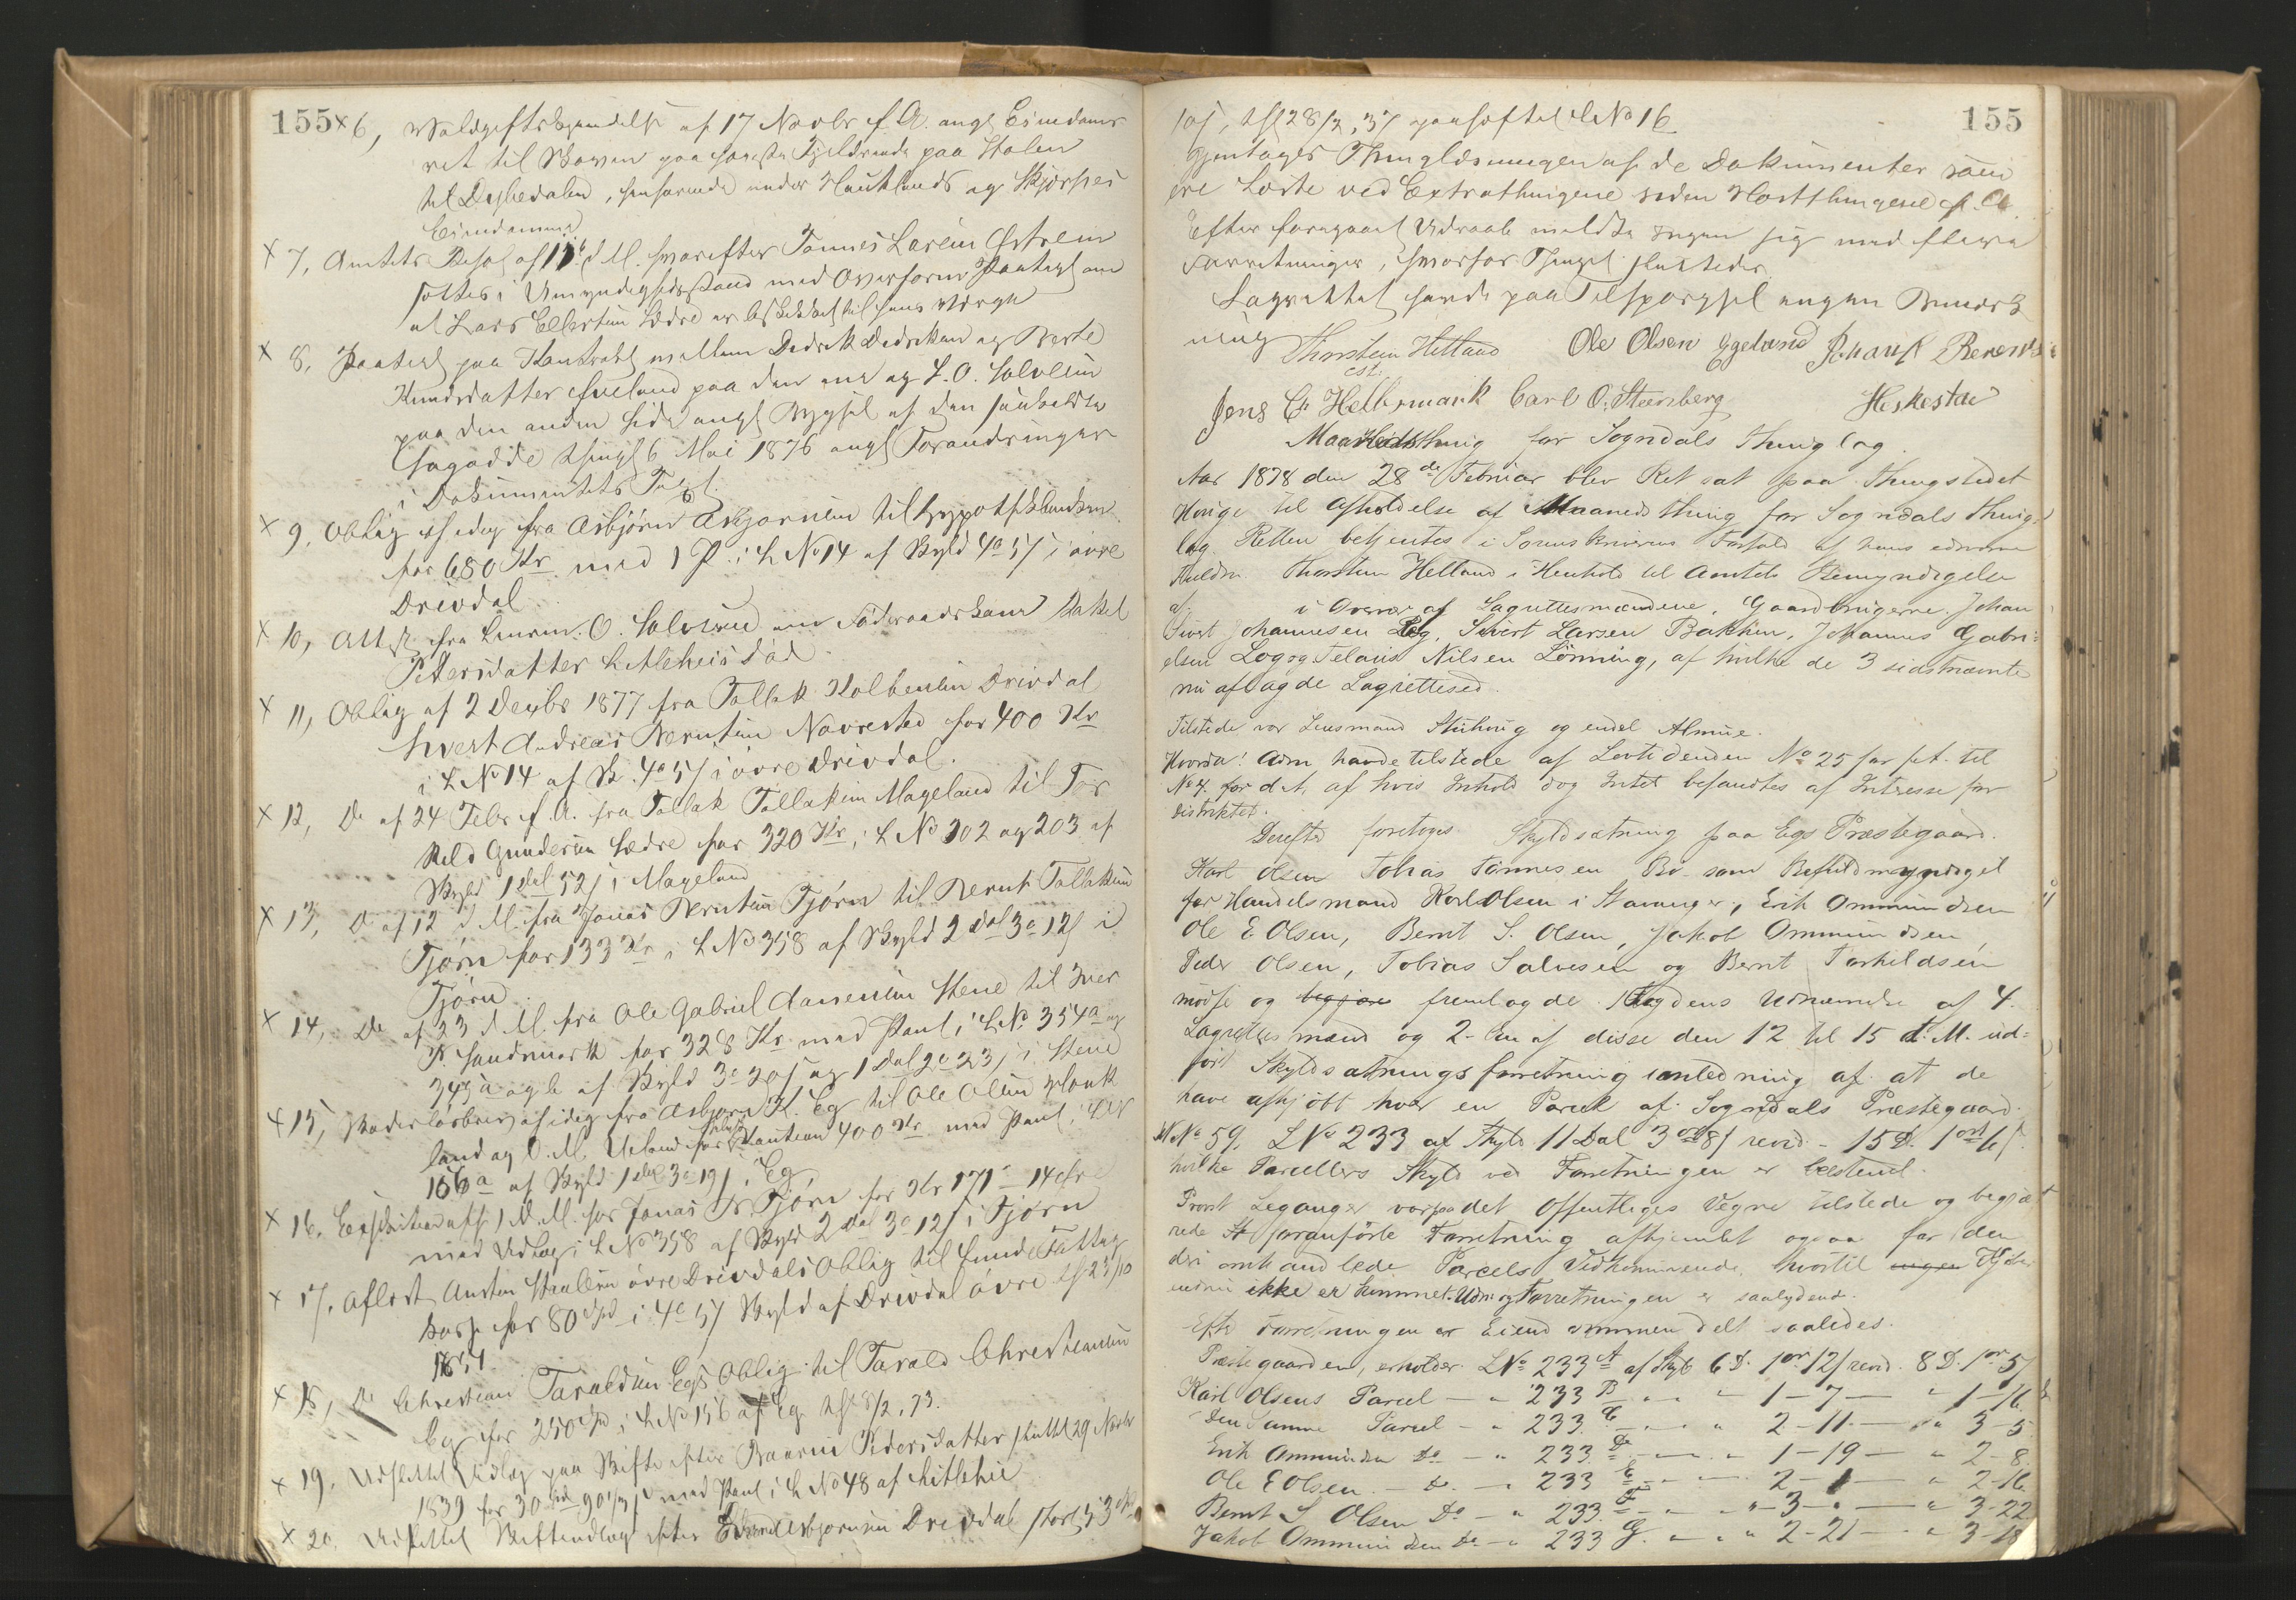 155
× 6, Voldgiftskjendelse af 17 Novbr f. A. angd Eiendoms
ret til Skoven paa Fjeldrende paa Stolen
til Dybedalen, henhørende under Hauklands og Skjerpes
Eiendomme
× 7, Amtets Resol af d. M. hvorefter Tønnes Larsen Østrem
sættes i Umyndighedsstand med Overform. Paategn om
at Lars Ellertsen Sædre er beskikket til hans Værge
× 8, Paategn paa Kontrakt mellem Didrik Didriksen og Berte
Knudsdatter Aueland paa den ene og L. O. Salvesen
paa den anden Side angd Bygsel af den saakaldte
thingl 6 Mai 1876 angd Forandringer
i Dokumentets Text.
× 9, Oblig af idag fra Asbjørn Asbjørnsen til Hypothekbanken
for 680 Kr med 1 P. i L No 14 af Skyld 4o 5/ i øvre
Drivdal
× 10, Attest fra Lensm. O. Salvesen om Føderaadskone Rakel
Pedersdatter Litleheis død.
× 11, Oblig af 2 Decbr 1877 fra Tollak Kolbensen Drivdal
hvert Andreas Berntsen Navrestad for 400 Kr
i L No 14 af Sk. 4o 5/ i øvre Drivdal.
× 12, Do af 24 Febr f. A. fra Tollak Tollaksen Mageland til Tor
kild Gundersen Sædre for 320 Kr i L No 202 og 203 af
Skyld 1 Dal 52/ i Mageland
× 13, Do af 12 d. M. fra Jonas Berntsen Tjørn til Bernt Tollaksen
Tjørn for 133 Kr i L No 358 af Skyld 2 Dal 3o 12/ i
Tjørn.
× 14, Do af 23 d. M. fra Ole Gabriel Aanensen Stene til Iver
P. Sandmark for 328 Kr med Pant i L No 354a og
345a og b af Skyld 3o 20/ og 1 Dal 2o 23/ i Stene
× 15, Skadesløsbrev af idag fra Asbjørn K. Eg til Ole Olsen
land og O. M. Ueland for Kaution 400 Kr med Pant i L No
156a af Skyld 1 Dal 3o 19/ i Eg
× 16, Execution af 1 d. M. hos Jonas Br. Tjørn for Kr 171 - 14 Øre
med Udlæg i L No 358 af Skyld 2 Dal 3o 12/ i Tjørn
× 17, Aflæst Austen Staalesen øvre Drivdals Oblig til Lunde Fattig
kasse for 80 Spd i 4o 5/ Skyld af Drivdal øvre th 23/10
1851.
× 18, Do Christian Taraldsen Egs Oblig til Tarald Christiansen
Eg for 250 Spd i L No 156 af Eg thl 28/2, 73.
× 19, Udslettet Udlæg paa Skifte efter Baarni Pedersdatter sluttet 29 Novbr
1839 for 30 Spd 90 1/2/ med Pant i L No 48 af Litlehei
× 20, Udslettet Skifteudlæg efter Asbjørnsen Drivdal stort 53
155
10/, th 28/2, 37 paaheftet L No 16
Gjentages Thinglæsningen af de Dokumenter som
ere læste ved Extrathingene siden Høstthingene f. A.
Efter foregaaet Udraab meldte ingen sig med flere
Forretninger, hvorfor Thinget sluttedes.
Lagrettet havde paa Tilspørgsel ingen Bemærk
ning Thorstein Helland Ole Olsen Egeland
cst.
Jens C. Carl O. Steensberg Heskestad
Maanedsthing for Sogndals thinglag.
Aar 1878 den 28de Februar blev Ret sat paa Thingstedet
Hauge til Afholdelse af Maanedsthing for Sogndals thing-
lag. Retten betjentes i Sorenskriverens Forfald af hans edsvorne
Fuldm. Thorstein Helland i Henhold til Amtets Bemyndigelse
af i Overvær af Lagrettesmændene, Gaardbrugerne Johan
Sivert Johannesen Log, Sivert Larsen Bakken, Johannes Gabri-
elsen Log og Nilsen Lønning, af hvilke de 3 sidstnævnte
nu aflagde Lagrettesed.
Tilstede var Lensmand og endel Almue.
Hvorda! Adm havde tilstede af Lovtidenden No 25 for f. A. til
No 4 for d. A. af hvis Inhold dog Intet befandtes af Interesse for
Distriktet.
Derefter foretoges Skyldsætning paa Egs Præstegaard.
Karl Olsen Tobias Tønnesen Bø som Befuldmægtiget
for Handelsmand Karl Olsen i Stavanger, Erik Ommundsen
Ole E. Olsen, Bernt S. Olsen, Jakob Ommundsen,
Peder Olsen, Tobias Salvesen og Bernt Torkildsen
mødte og begjær fremlagde Fogdens Udnævnelse af 4
Lagrettesmænd og 2 Ex af disse den 12 til 15 d. M. ud-
ført Skyldsætningsforretning i Anledning af at de
have afkjøbt hver en Parcel af Sogndals Præstegaard
MNo 59, LNo 233 af Skyld 11 Dal 3 ort 8/ revid - 15 D. 1 ort 6/
hvilke Parcellers Skyld ved Forretningen er bestemt.
Provst Leganger var paa det Offentliges Vegne tilstede og begjæ
rede foranførte Forretning afhjemlet ogsaa for den
deri omhandlede Parcels Vedkommende, hvortil ingen Kjøber
endnu ikke er kommet. Udn og Forretningen er saalydende.
Efter Forretningen er Eiendommen delt saaledes.
Præstegaarden, erholder LNo 233 A af Skyld 6 D. 1 or 12/ revid 8 D. 1 or 5/
Karl Olsens Parcel — " 233 B — " — 1-7 — " 1-16
Den Samme Parcel — " 233 C — " 2-11 — " 3-5
Erik Ommundsen Do — " 233 D — " 1-19 — " 2-8
Ole E Olsen — Do — " 233 E — 2-1 — " 2-16
Bernt S Olsen Do — " 233 F — " 3-" — " 3-22
Jakob Ommundsen Do — " 233 G — " 2-21 — " 3-18